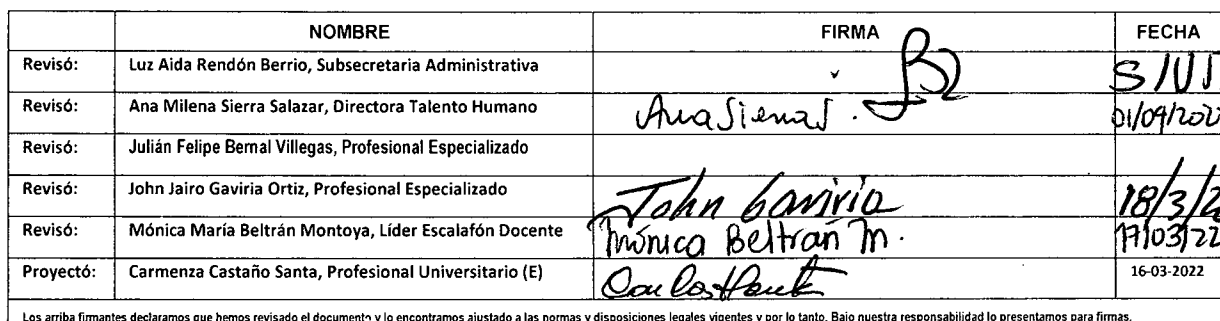 NOMBRE FIRMA FECHA
Revisó: Luz Aida Rendón Berrio, Subsecretaria Administrativa
Revisó: Ana Milena Sierra Salazar, Directora Talento Humano AnaSierraS. 01/09/202
Revisó: Julián Felipe Bernal Villegas, Profesional Especializado
Revisó: John Jairo Gaviria Ortiz, Profesional Especializado John Gaviria 18/3/2
Revisó: Mónica María Beltrán Montoya, Líder Escalafón Docente Mónica Beltrán M. 17/03/22
Proyectó: Carmenza Castaño Santa, Profesional Universitario (E) 16-03-2022
Los arriba firmantes declaramos que hemos revisado el documento y lo encontramos ajustado a las normas y disposiciones legales vigentes y por lo tanto, Bajo nuestra responsabilidad lo presentamos para firmas.